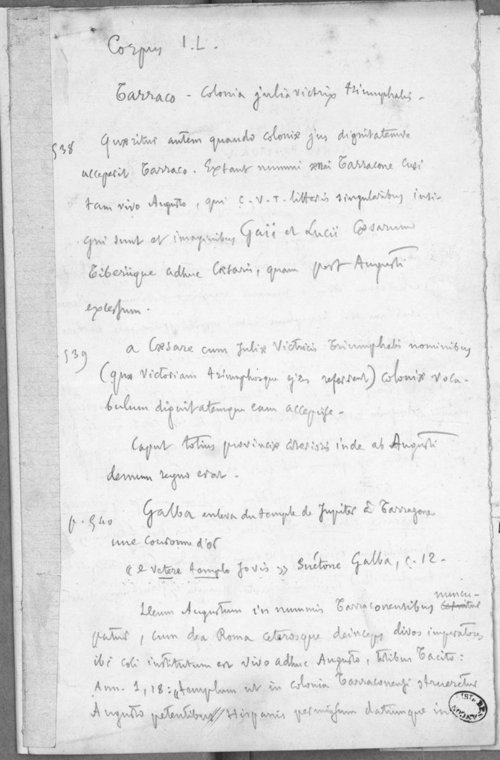 Corpus I.L.
Tarraco - Colonia julia victrix triumphalis -
538 Quaeritur autem quando coloniae jus dignitatemve
acceperit Tarraco. Extant nummi Tarracone cusi
tam vivo Augusto, qui C.V.T. litteris singularibus insi-
gni sunt et imaginibus Gaii et Lucii Caesarum
Tiberiique adhuc Caesaris, quam post Augusti
excessum.
539 a Caesare cum Juliae Victricis Triumphalis nominibus
(quae victoriam triumphosque ejus referrent) coloniae voca-
bulum dignitatemque eam accepisse -
Caput totius provinciae citerioris inde ab Augusti
demum regno erat -
p. 540 Galba enleva du temple de Jupiter à Tarragone
une couronne d'or
« e vetere templo Jovis » Suétone Galba, c. 12 -
Deum Augustum in nummis Tarraconensibus nuncu-
patur, cum dea Roma ceterosque deinceps divos imperatores
ibi coli institutum est vivo adhuc Augusto, Tacito :
Ann. 1, 18 : "templum ut in colonia Tarraconensi strueretur
Augusto petentibus Hispanis permissum datumque in